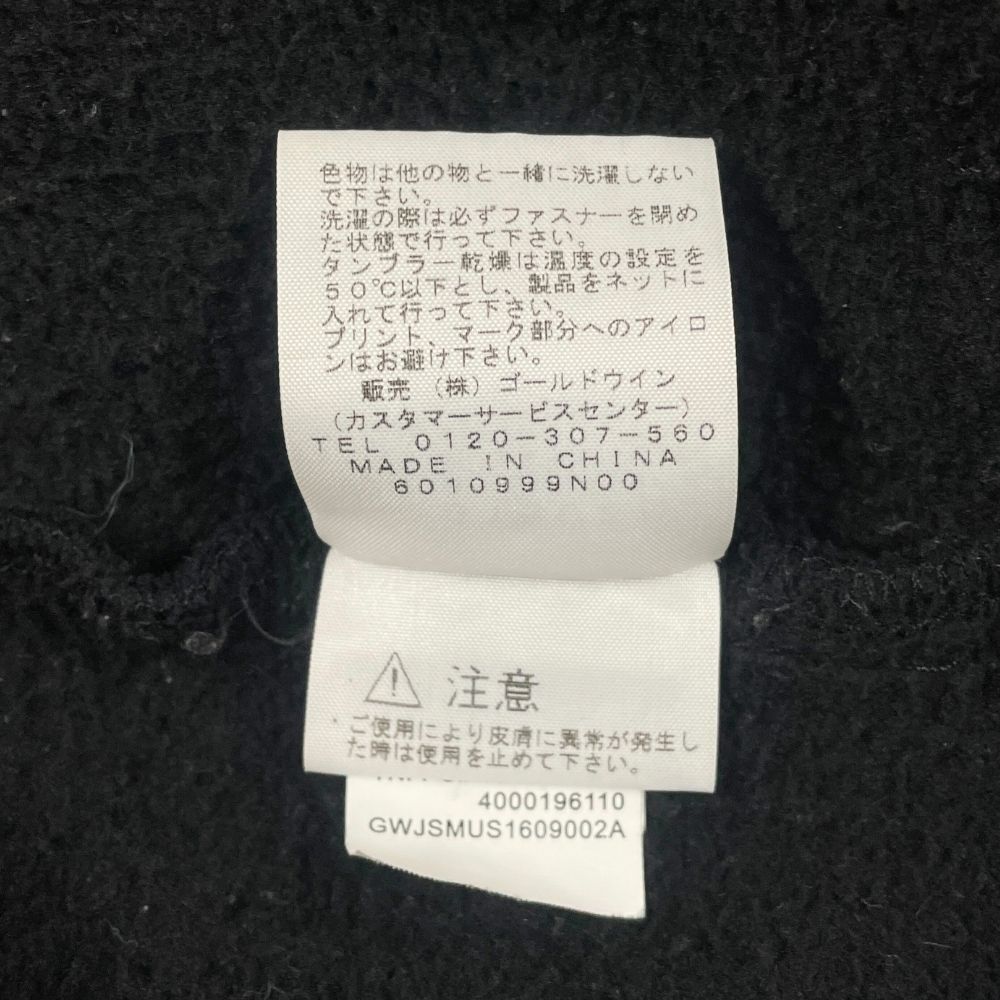 色物は他の物と一緒に洗濯しない
で下さい。
洗濯の際は必ずファスナーを閉め
た状態で行って下さい。
タンブラー乾燥は温度の設定を
50℃以下とし、製品をネットに
入れて行って下さい。
プリント、マーク部分へのアイロ
ンはお避け下さい。
販売 (株) ゴールドウイン
(カスタマーサービスセンター)
TEL 0120-307-560
MADE IN CHINA
6010999N00
注意
・ご使用により皮膚に異常が発生し
た時は使用を止めて下さい。
4000196110
GWJSMUS1609002A